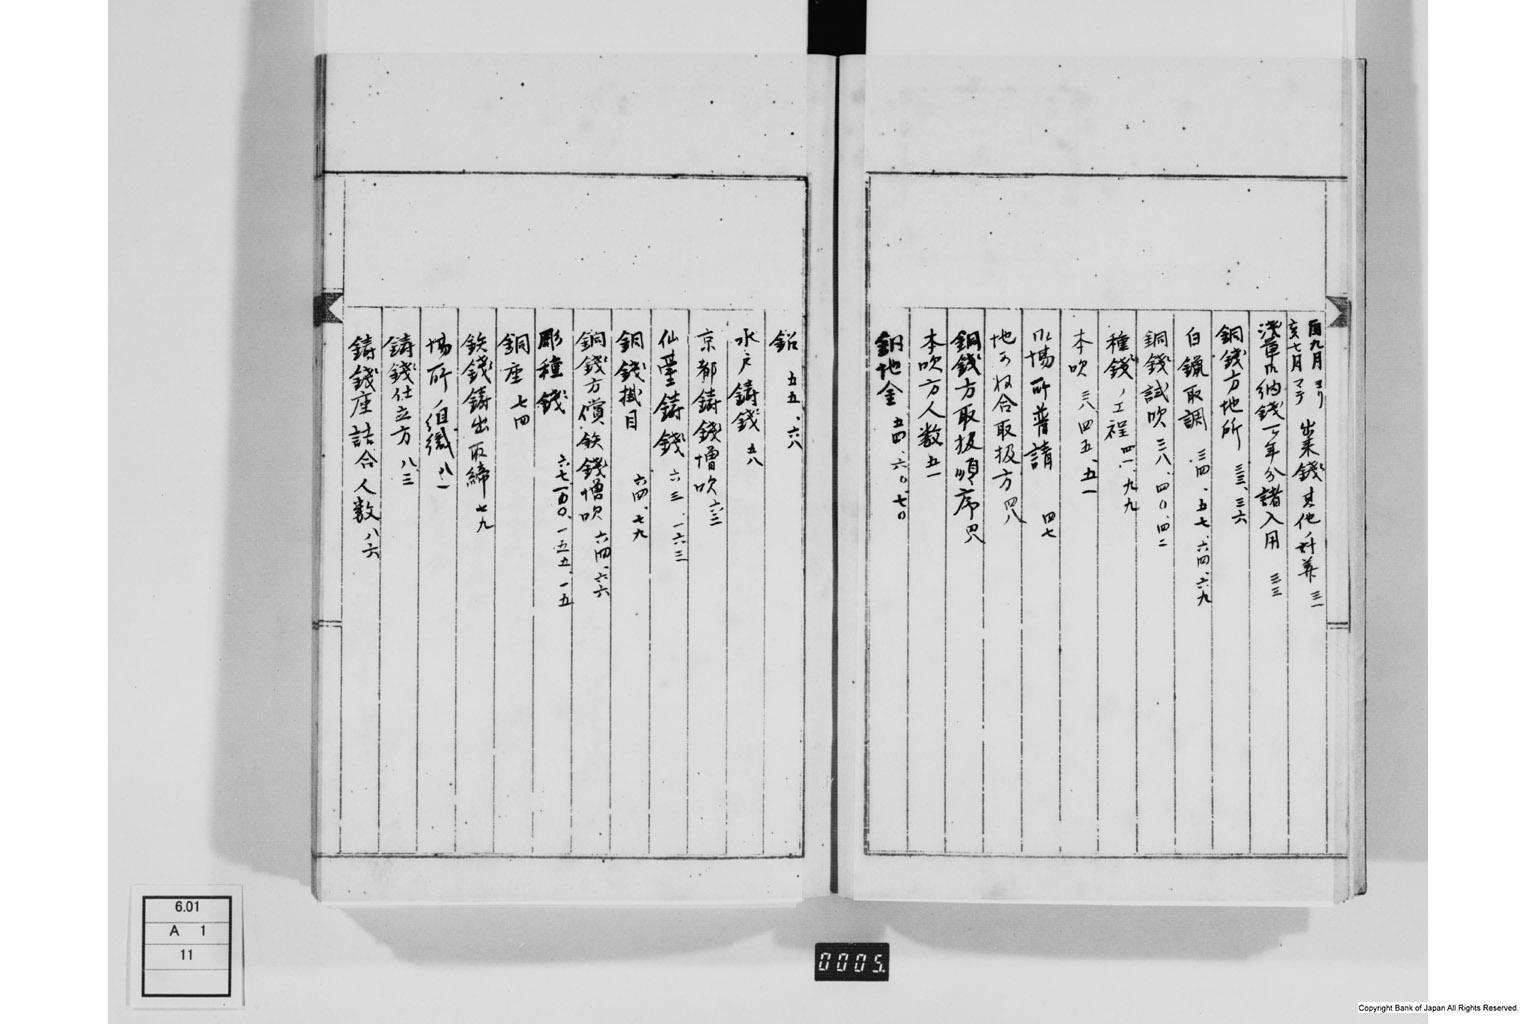 酉九月ヨリ
亥七月マテ 出来錢其他斗算 三一
浅草御納錢一ヶ年分諸入用 三三
銅錢方地所 三三、三六
白鑞取調 三四、五七、六四、六九
銅錢試吹 三八、四〇、四二
種錢ノ工程 四一、九九
本吹 三八、四五、五一
吹場所普請 四七
地金取合取扱方 四八
銅錢方取扱順序 四八
本吹方人数 五一
銅地金 五四、六〇、七〇
鉛 五五、六八
水戸鋳錢 五八
京都鋳錢増吹 六三
仙臺鋳錢 六三、一六三
銅錢掛目 六四、七九
銅錢方償鉄錢増吹 六四、六六
彫種錢
銅座 七四
鉄錢鋳出取締 七九
場所ノ組織 八一
鋳錢仕立方 八三
鋳錢座詰合人数 八六
6.01
A 1
11
0005
Copyright Bank of Japan All Rights Reserved.